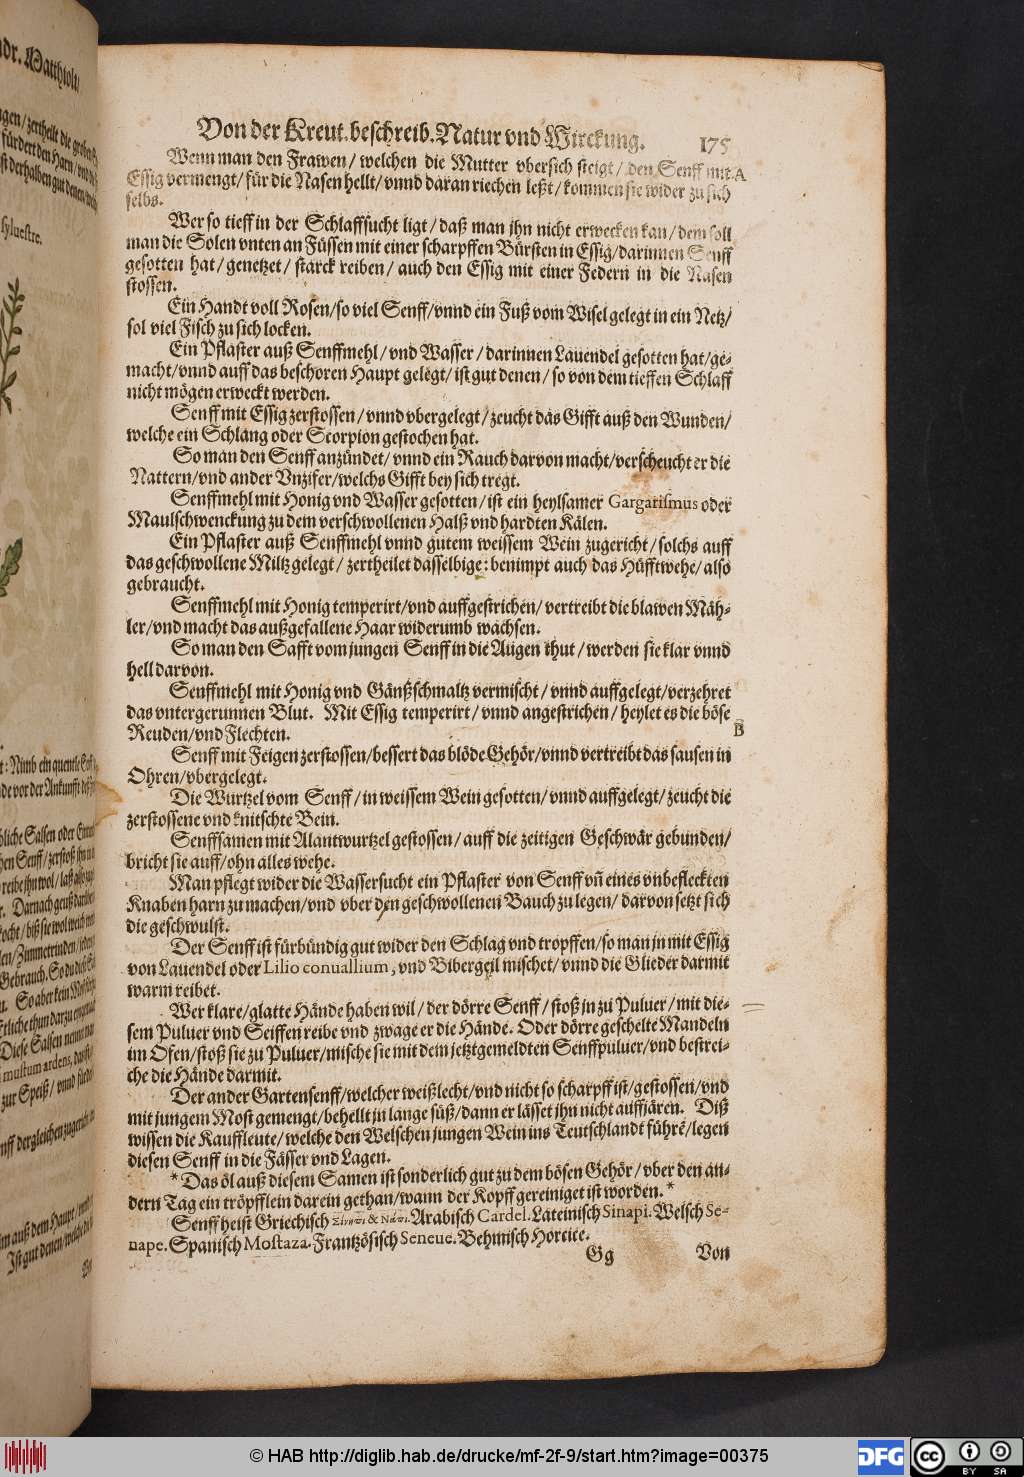 Von der Kreut. beschreib. Natur vnd Wirckung. 175
Wenn man den Frawen / welchen die Mutter vbersich steigt / den Senff mit A
Essig vermengt / für die Nasen hellt / vnnd daran riechen leßt / kommen sie wider zu sich
selbs.
Wer so tieff in der Schlaffsucht ligt / daß man jhn nicht erwecken kan / dem soll
man die Solen vnten an Füssen mit einer scharpffen Bürsten in Essig / darinnen Senff
gesotten hat / genetzet / starck reiben / auch den Essig mit einer Federn in die Nasen
stossen.
Ein Handt voll Rosen / so viel Senff / vnnd ein Fuß vom Wisel gelegt in ein Netz /
sol viel Fisch zu sich locken.
Ein Pflaster auß Senffmehl / vnd Wasser / darinnen Lauendel gesotten hat / ge-
macht / vnnd auff das beschoren Haupt gelegt / ist gut denen / so von dem tieffen Schlaff
nicht mögen erweckt werden.
Senff mit Essig zerstossen / vnnd vbergelegt / zeucht das Gifft auß den Wunden /
welche ein Schlang oder Scorpion gestochen hat.
So man den Senff anzündet / vnnd ein Rauch darvon macht / verscheucht er die
Nattern / vnd ander Vnzifer / welchs Gifft bey sich tregt.
Senffmehl mit Honig vnd Wasser gesotten / ist ein heylsamer Gargarismus oder
Maulschwenckung zu dem verschwollenen Halß vnd hardten Kälen.
Ein Pflaster auß Senffmehl vnnd gutem weissem Wein zugericht / solchs auff
das geschwollene Miltz gelegt / zertheilet dasselbige : benimpt auch das Hüfftwehe / also
gebraucht.
Senffmehl mit Honig temperirt / vnd auffgestrichen / vertreibt die blawen Mäh-
ler / vnd macht das außgefallene Haar widerumb wachsen.
So man den Safft vom jungen Senff in die Augen thut / werden sie klar vnnd
hell darvon.
Senffmehl mit Honig vnd Gänßschmaltz vermischt / vnnd auffgelegt / verzehret
das vntergerunnen Blut. Mit Essig temperirt / vnnd angestrichen / heylet es die böse
B
Reuden / vnd Flechten.
Senff mit Feigen zerstossen / bessert das blöde Gehör / vnnd vertreibt das sausen in
Ohren / vbergelegt.
Die Wurtzel vom Senff / in weissem Wein gesotten / vnnd auffgelegt / zeucht die
zerstossene vnd knitschte Bein.
Senffsamen mit Alantwurtzel gestossen / auff die zeitigen Geschwär gebunden /
bricht sie auff / ohn alles wehe.
Man pflegt wider die Wassersucht ein Pflaster von Senff vñ eines vnbefleckten
Knaben harn zu machen / vnd vber den geschwollenen Bauch zu legen / darvon setzt sich
die geschwulst.
Der Senff ist fürbündig gut wider den Schlag vnd tropffen / so man jn mit Essig
von Lauendel oder Lilio conuallium, vnd Bibergeil mischet / vnnd die Glieder darmit
warm reibet.
Wer klare / glatte Hände haben wil / der dörre Senff / stoß jn zu Puluer / mit die-
sem Puluer vnd Seiffen reibe vnd zwage er die Hände. Oder dörre geschelte Mandeln
im Ofen / stoß sie zu Puluer / mische sie mit dem jetztgemeldten Senffpuluer / vnd bestrei-
che die Hände darmit.
Der ander Gartensenff / welcher weißlecht / vnd nicht so scharpff ist / gestossen / vnd
mit jungem Most gemengt / behellt jn lange süß / dann er lässet jhn nicht auffjären. Diß
wissen die Kauffleute / welche den Welschen jungen Wein ins Teutschlandt führẽ / legen
diesen Senff in die Fässer vnd Lagen.
* Das öl auß diesem Samen ist sonderlich gut zu dem bösen Gehör / vber den an-
dern Tag ein tröpfflein darein gethan / wann der Kopff gereiniget ist worden. *
Senff heist Griechisch Σίνηπι & Νάπυ. Arabisch Cardel. Lateinisch Sinapi. Welsch Se-
nape. Spanisch Mostaza. Frantzösisch Seneue. Behmisch Horcice.
Gg Von
© HAB http://diglib.hab.de/drucke/mf-2f-9/start.htm?image=00375
DFG
cc BY SA